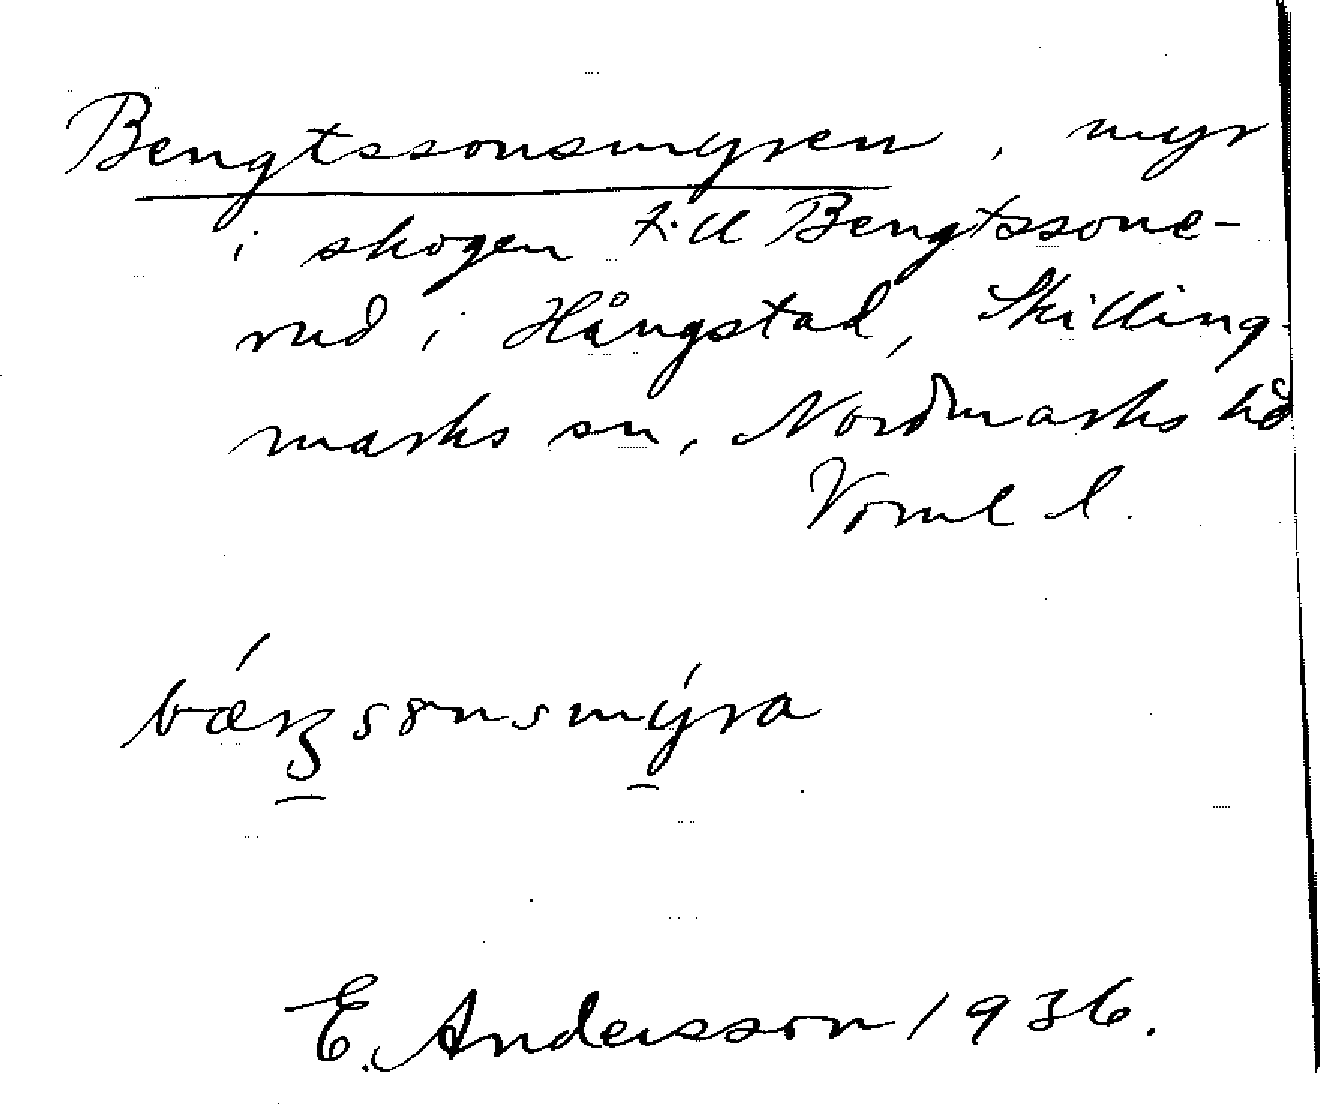 Bengtssonsmyren, myr
i skogen till Bengtssons-
rud i Hångstad, Skilling-
marks sn, Nordmarks hd
Värml l.
E. Andersson 1936.